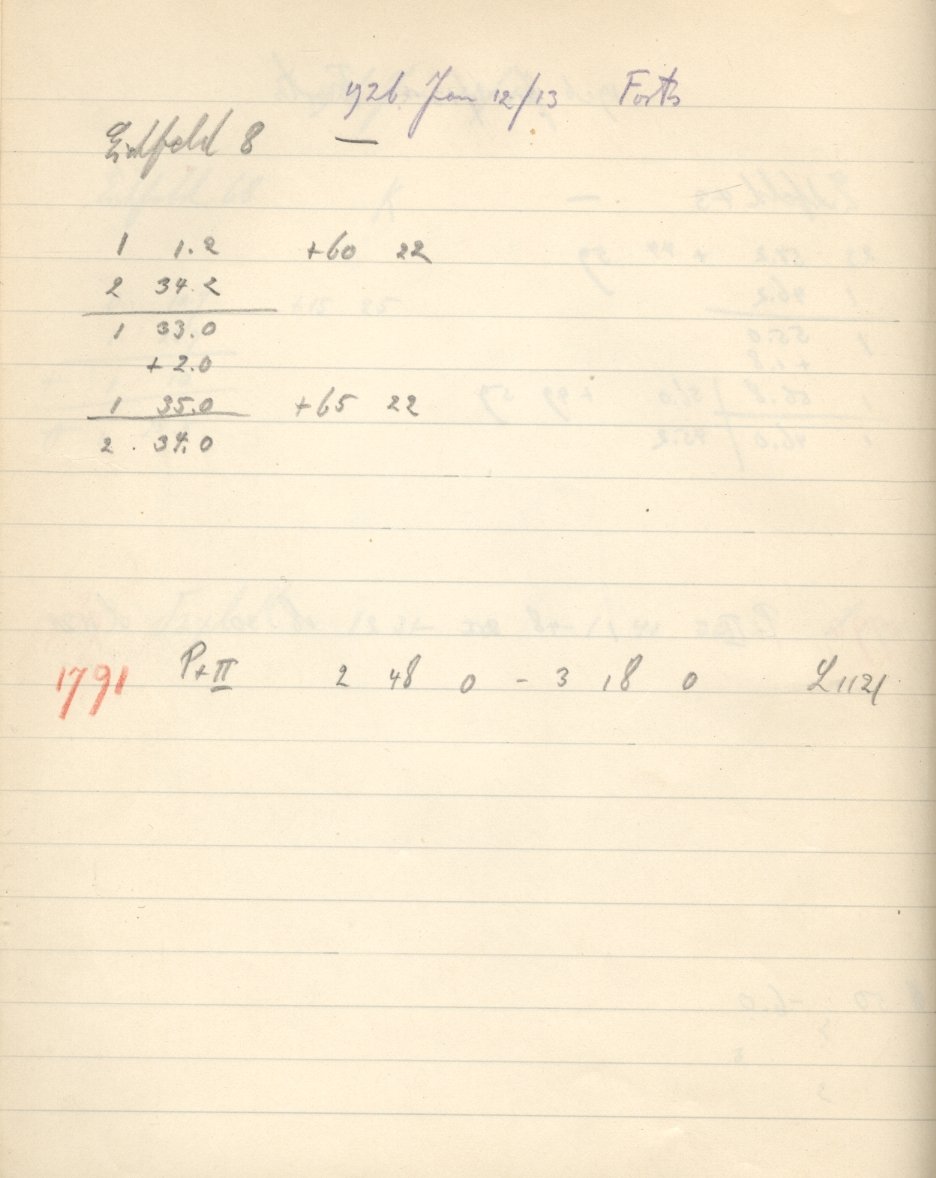 1926 Jan 12/13 Forts
Eichfeld 8
1 1.2 +60 22
2 34.2
1 33.0
+2.0
1 35.0 +65 22
2 34.0
1791 P+II 2 48 0 - 3 18 0 L 1121